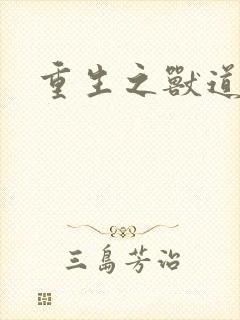 重生之獸道
三島芳治